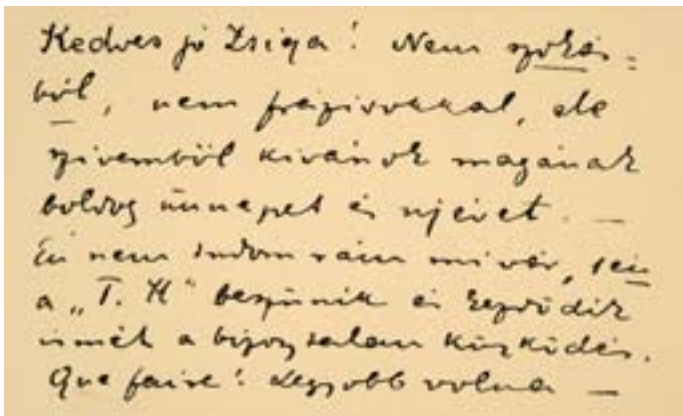 Kedves jó Zsiga! Nem szokás-
ból, nem frázisokkal, de
szivemböl kivánok magának
boldog ünnepet és ujévet. —
Én nem tudom rám mi vár,
a „T. H" beszünik és kezdödik
ismét a bizonytalan küzködés.
Que faire! Legjobb volna —